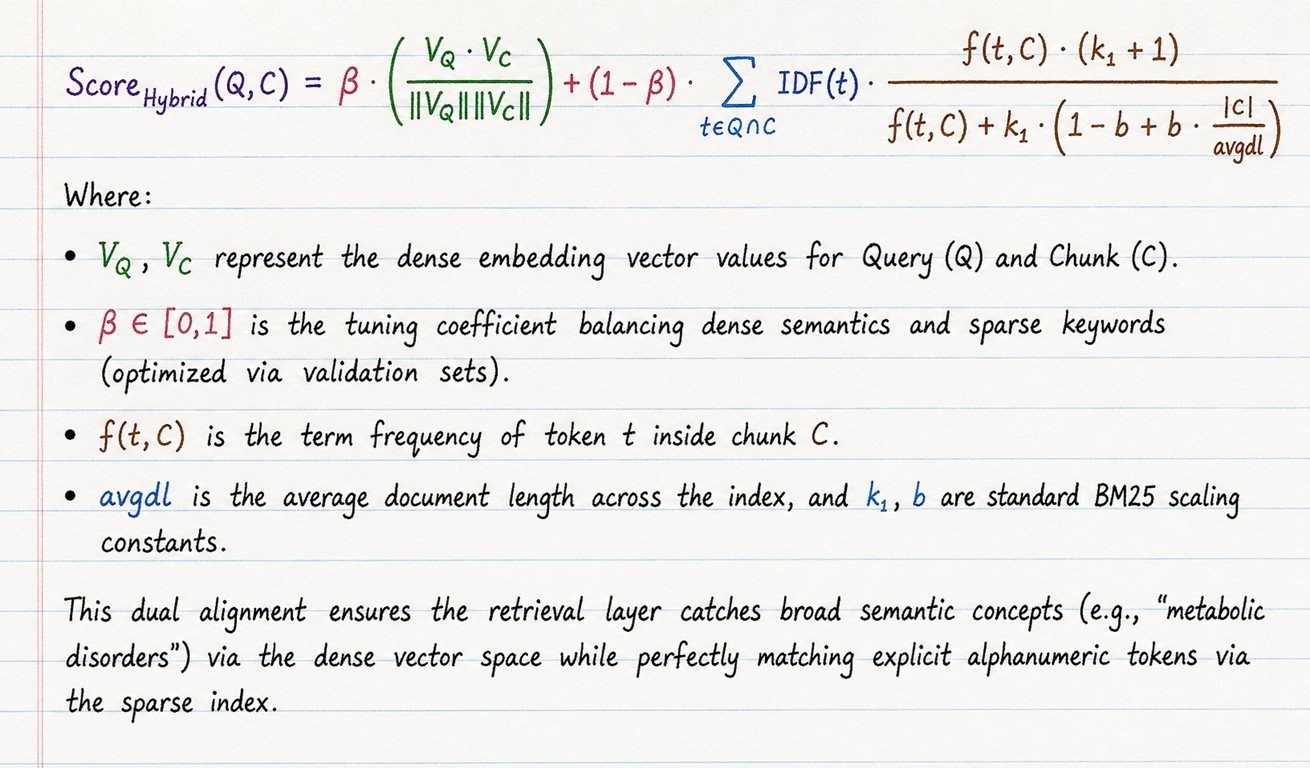 Score_Hybrid(Q, C) = β · ( (V_Q · V_C) / (‖V_Q‖ ‖V_C‖) ) + (1 − β) · ∑_{t∈Q∩C} IDF(t) · (f(t, C) · (k₁ + 1)) / (f(t, C) + k₁ · (1 − b + b · |C| / avgdl))
Where:
• V_Q , V_C represent the dense embedding vector values for Query (Q) and Chunk (C).
• β ∈ [0,1] is the tuning coefficient balancing dense semantics and sparse keywords
(optimized via validation sets).
• f(t, C) is the term frequency of token t inside chunk C.
• avgdl is the average document length across the index, and k₁, b are standard BM25 scaling
constants.
This dual alignment ensures the retrieval layer catches broad semantic concepts (e.g., “metabolic
disorders”) via the dense vector space while perfectly matching explicit alphanumeric tokens via
the sparse index.